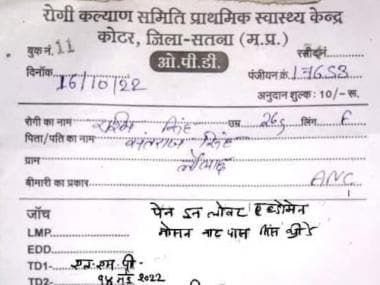 रोगी कल्याण समिति प्राथमिक स्वास्थ्य केन्द्र
कोटर, जिला-सतना (म.प्र.)
बुक नं. 11 रसीद नं.
ओ.पी.डी.
दिनाँक 16/10/22 पंजीयन क्रं. 17653
अनुदान शुल्क: 10/- रू.
रोगी का नाम रश्मि सिंह उम्र 26 लिंग F
पिता/पति का नाम सिंह
ग्राम
बीमारी का प्रकार ANC
जाँच पेन इन लोवर एब्डोमेन
LMP
EDD
TD1- एल.एम.पी-
TD2- १४ मई 2022